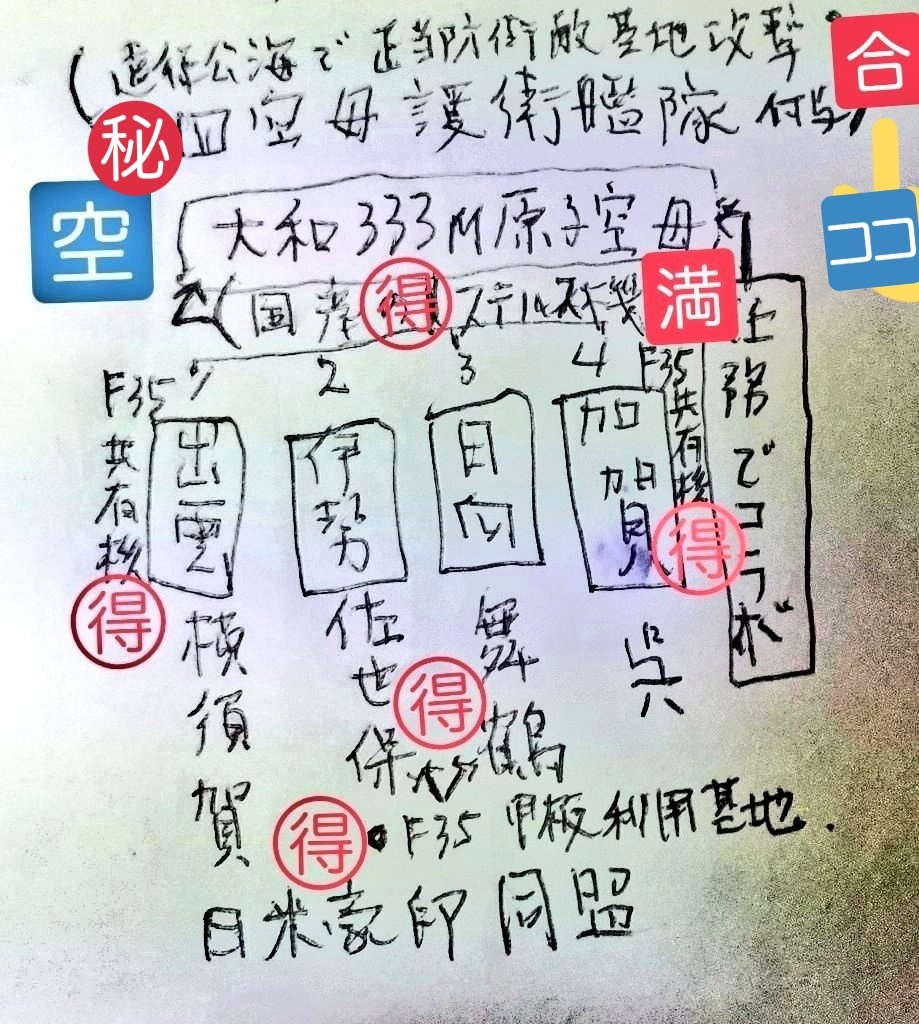 公海で正当防衛敵基地攻撃
合
秘
四空母護衛艦隊 付与)
空
大和333M原子空母
ココ
(国産
得
ステルス機
満
任務でコラボ
1 2 3 4
F35共有機
得
出雲
伊勢
日向
加賀
F35共有機
得
横須賀
佐世保
舞鶴
呉
得
大分
得
・F35 甲板利用基地.
日米豪印同盟